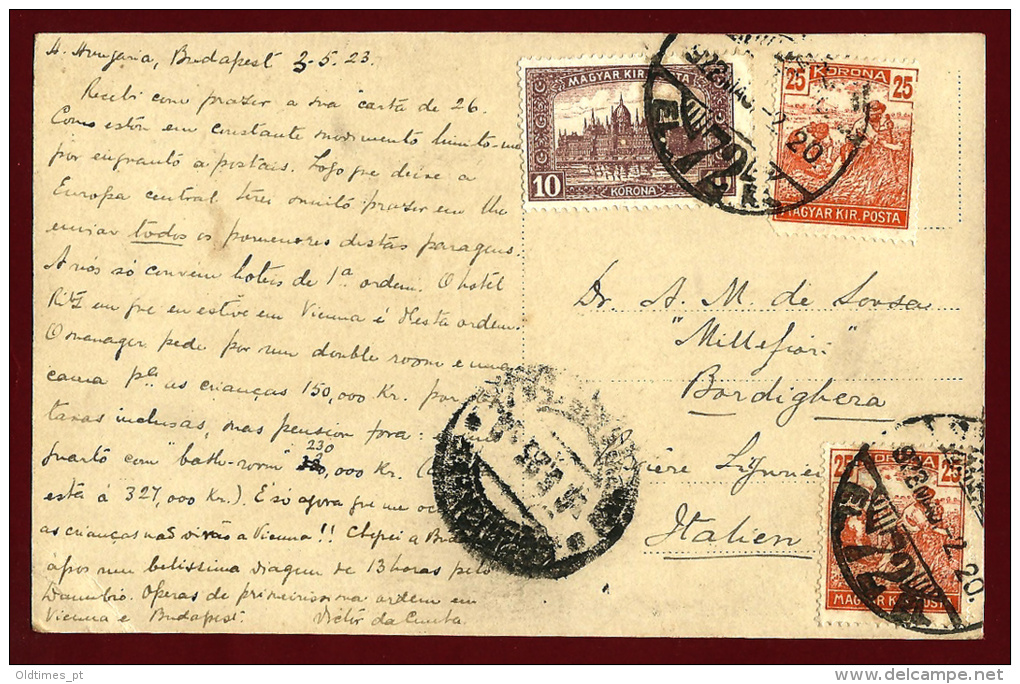 A. Hungaria, Budapest 3-5-23.
Recebi com prazer a sua carta de 26.
Como estou em constante movimento limito-me
por enquanto a postais. Logo que deixe a
Europa central terei muito prazer em lhe
enviar todos os pormenores destas paragens.
A nós só convem hoteis de 1ª ordem. O hotel
Ritz em que eu estive em Vienna é desta ordem.
O manager pede por um double room e uma
cama pª as crianças 150,000 Kr. por
taxas inclusas, mas pension fora:
quarto com "bath-room" 230,000 Kr. (
está a 327,000 Kr.) E só agora que me
as crianças não virão a Vienna!! Cheguei a
após um belissima viagem de 13 horas pelo
Danubio. Operas de primeirissima ordem em
Vienna e Budapest. Victor da Cunha.
MAGYAR KIR. POSTA
10
KORONA
25 KORONA 25
MAGYAR KIR. POSTA
Dr. A. M. de Sousa
"Millefiori"
Bordighera
Italien
25 KORONA
MAGYAR KIR. POSTA
Oldtimes_pt
delcampe.net